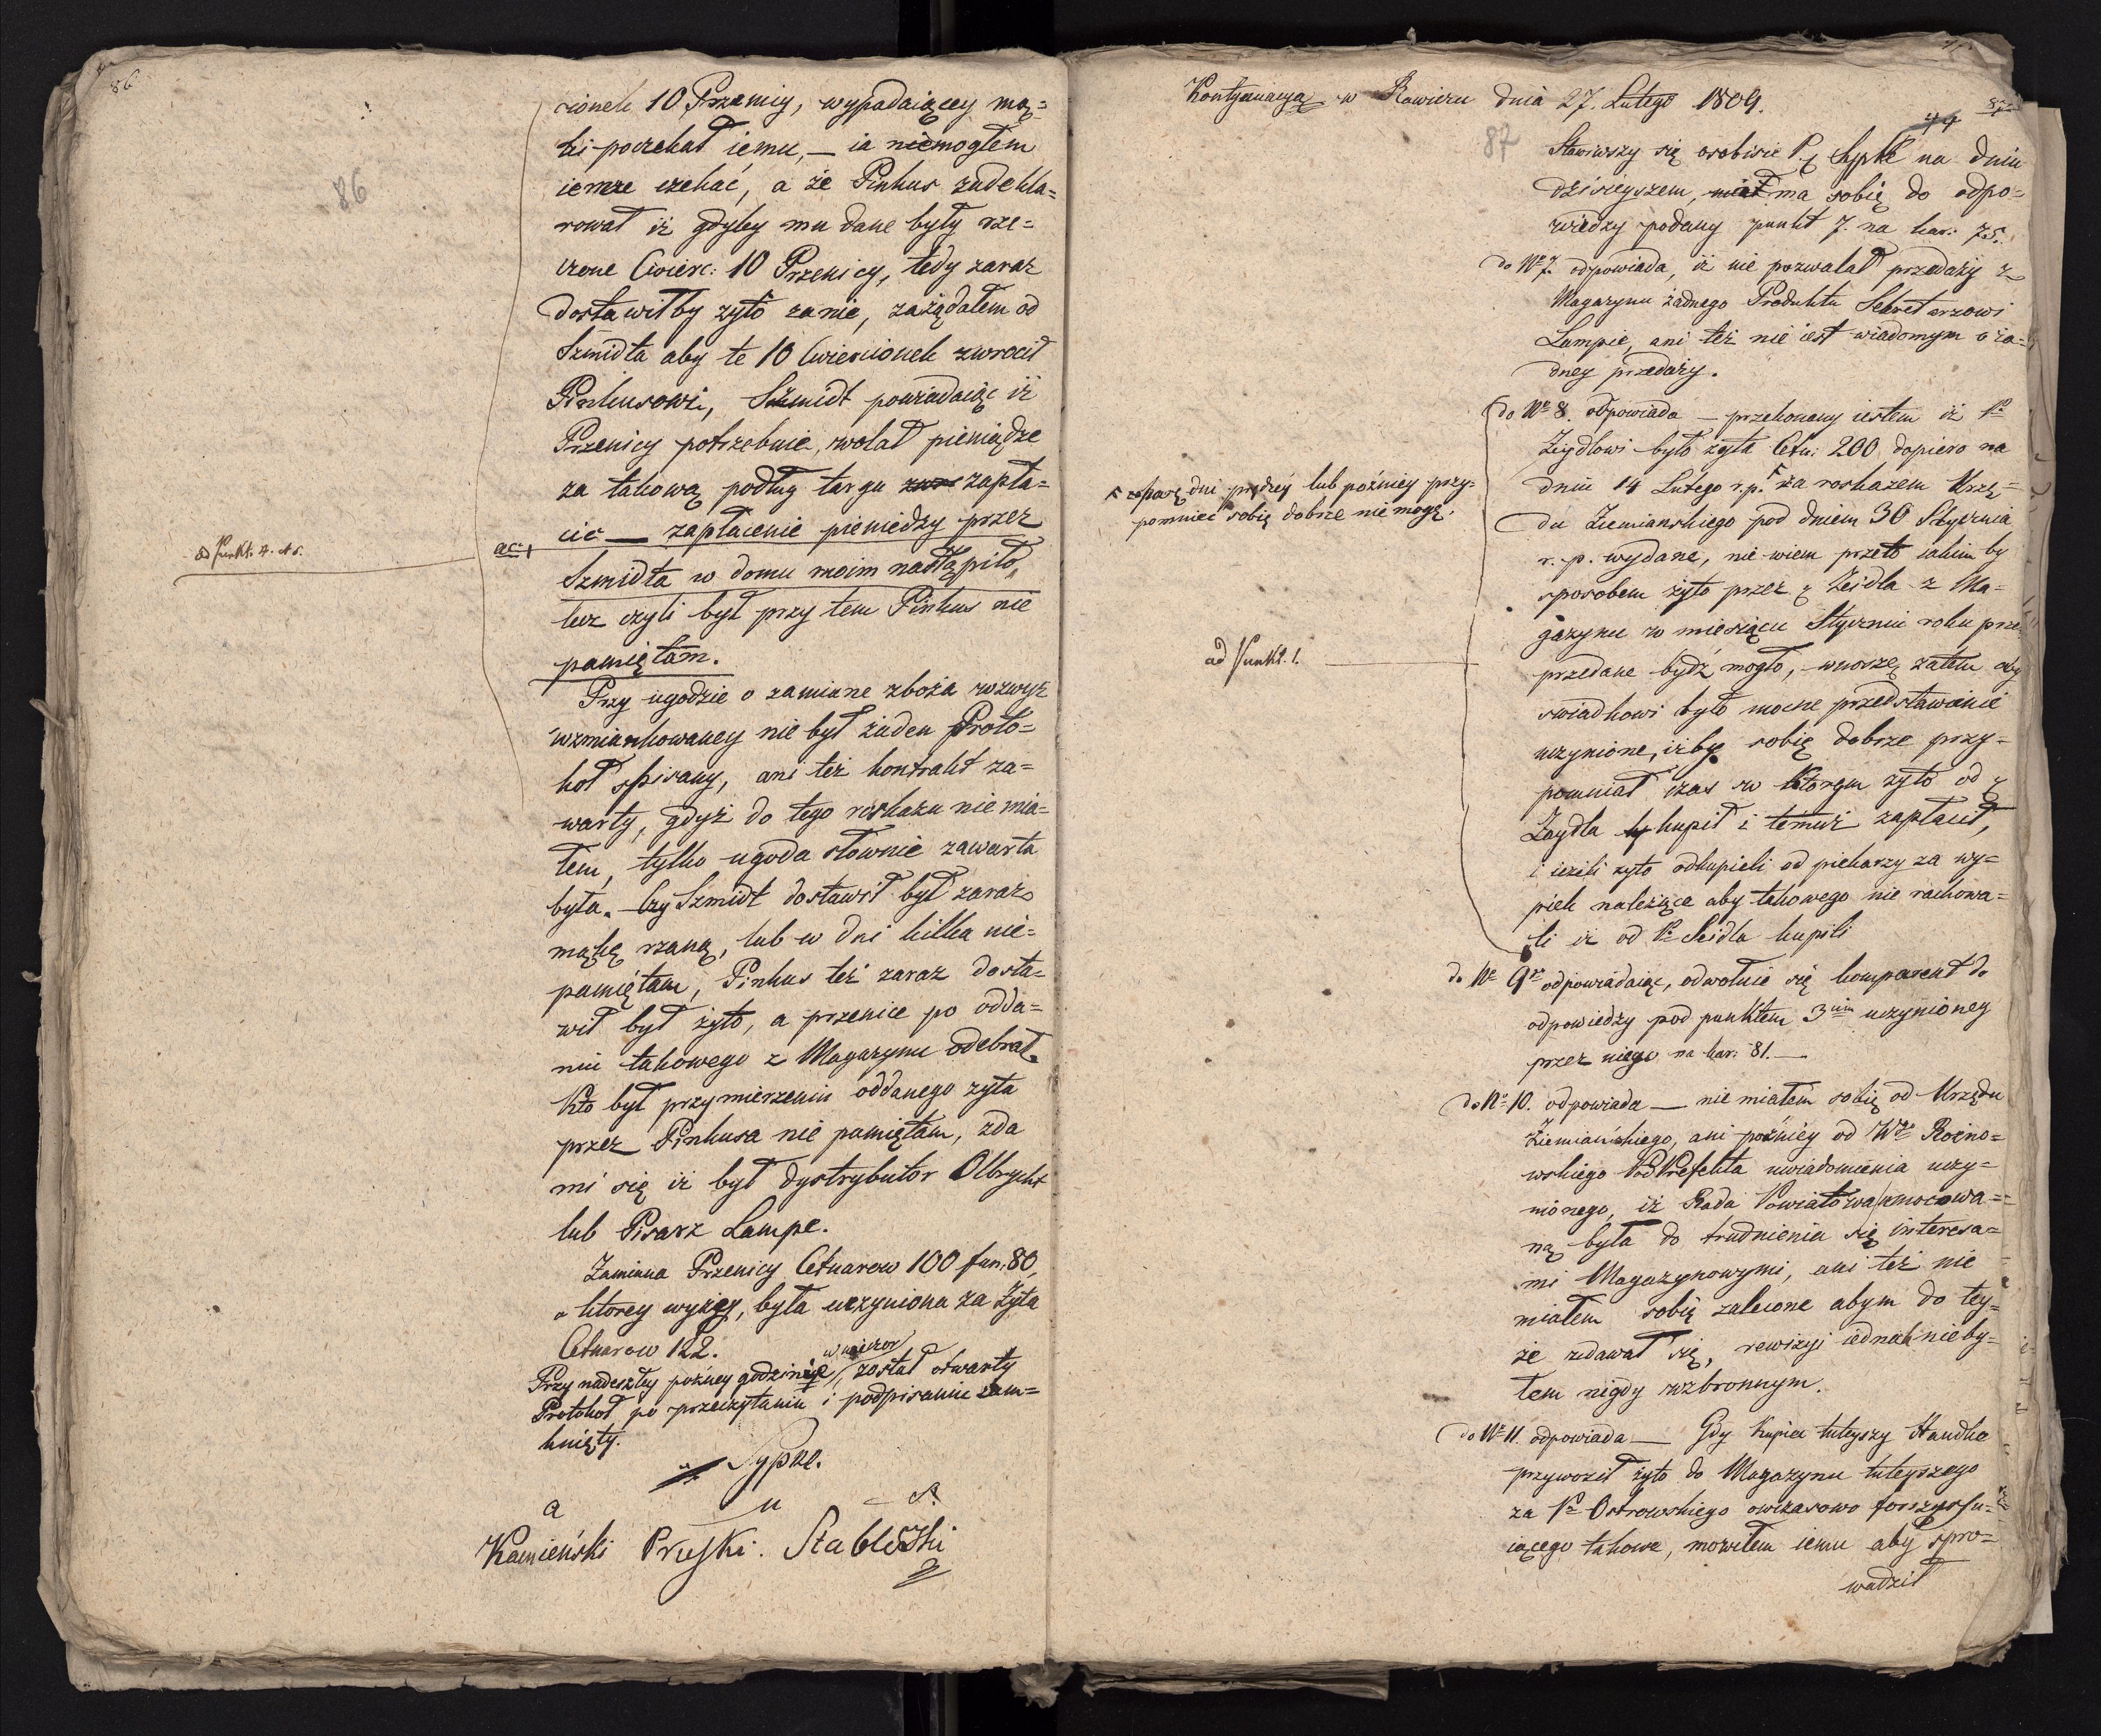 86
86
cionek 10 Przenicy, wypadaiącey mą=
ki poczekał iemu, — ia niemogłem
iemze czekać, a że Pinkus zadekla=
rował iż gdyby mu dane były rze=
czone Cwierc: 10 Przenicy, tedy zaraz
dostawiłby żyto zanie, zażądałem od
Szmidta aby te 10 Cwiercionek zwrocił
Pinkusowi, Szmidt powiadaiąc iż
Przenicy potrzebuie, wolał pieniądze
za takową podług targu zapła=
cić — zapłacenie pieniędzy przez
Szmidta w domu moim nastąpiło,
lecz czyli był przy tem Pinkus nie
pamiętam.
ad Punkt. 4. et 5.
Przy ugodzie o zamianę zboża wzwyż
wzmiankowaney nie był żaden Proto=
koł spisany, ani też kontrakt za=
warty, gdyż do tego roskazu nie mia=
łem, tylko ugoda słownie zawarta
była. Czy Szmidt dostawił był zaraz
mąkę rzaną, lub w dni kilka nie=
pamiętam, Pinkus też zaraz dosta=
wił był żyto, a przenice po odda=
niu takowego z Magazynu odebrał.
Kto był przymierzeniu oddanego żyta
przez Pinkusa nie pamiętam, zda
mi się iż był dystrybutor Olbrycht
lub Pisarz Lampe.
Zamiana Przenicy Cetnarow 100 fun: 80,
o ktorey wyżey, była uczyniona za żyta
Cetnarow 122.
Przy nadeszłey poźney godzinie wieczor został otwarty
Protokoł po przeczytaniu i podpisaniu zam=
knięty.
Sypke.
Kamieński Pruski. Stablewski
Kontynuacya w Rawiczu dnia 27. Lutego 1809.
87
87
Stawiwszy się osobiscie P. Sypke na dniu
dzisieyszem, ma sobię do odpo=
wiedzy podany punkt 7. na kar: 75.
do Nr 7. odpowiada, iż nie pozwalał przedaży z
Magazynu żadnego Produktu Sekretarzowi
Lampie, ani też nie iest wiadomym o ża=
dney przedaży.
do Nr 8. odpowiada — przekonany iestem iż P.
Zeydlowi było żyta Cetn: 200 dopiero na
dniu 14 Lutego r. p. za roskazem Urzę=
du Ziemianskiego pod dniem 30 Stycznia
r. p. wydane, nie wiem przeto iakim by
sposobem żyto przez Zeidla z Ma=
gazynu w miesiącu Styczniu roku prze
przedane bydź mogło, — wnoszę zatem aby
swiadkowi było mocne przedstawienie
uczynione, iżby sobię dobrze przy=
pomniał czas w ktorym żyto od
Zaydla kupił i temuż zapłacił,
i ieżli żyto odkupieli od piekarzy za wy=
piek należące aby takowego nie rachowa=
li iż od P. Seidla kupili
parę dni prędzey lub pożniey przy=
pomnieć sobię dobrze nie mogę.
ad Punkt. 1.
do Nr 9. odpowiadaiąc, odwołuie się komparent do
odpowiedzy pod punktem 3cim uczynioney
przez niego na kar: 81. —
do Nr 10. odpowiada — nie miałem sobię od Urzędu
Ziemiańskiego, ani pożniey od Wgo Rożno=
wskiego PodPrefekta uwiadomienia uczy=
nionego, iż Rada Powiatowa umocowa=
ną była do trudnienia się interesa=
mi Magazynowymi, ani też nie
miałem sobię zalecone abym do tey=
że udawał się, rewizyi iednak nieby=
łem nigdy wzbronnym.
do Nr 11. odpowiada — Gdy Kupiec tuteyszy Handke
przywoził żyto do Magazynu tuteyszego
za P. Ostrowskiego owczasowo
iącego takowe, mowiłem iemu aby spro=
wadził